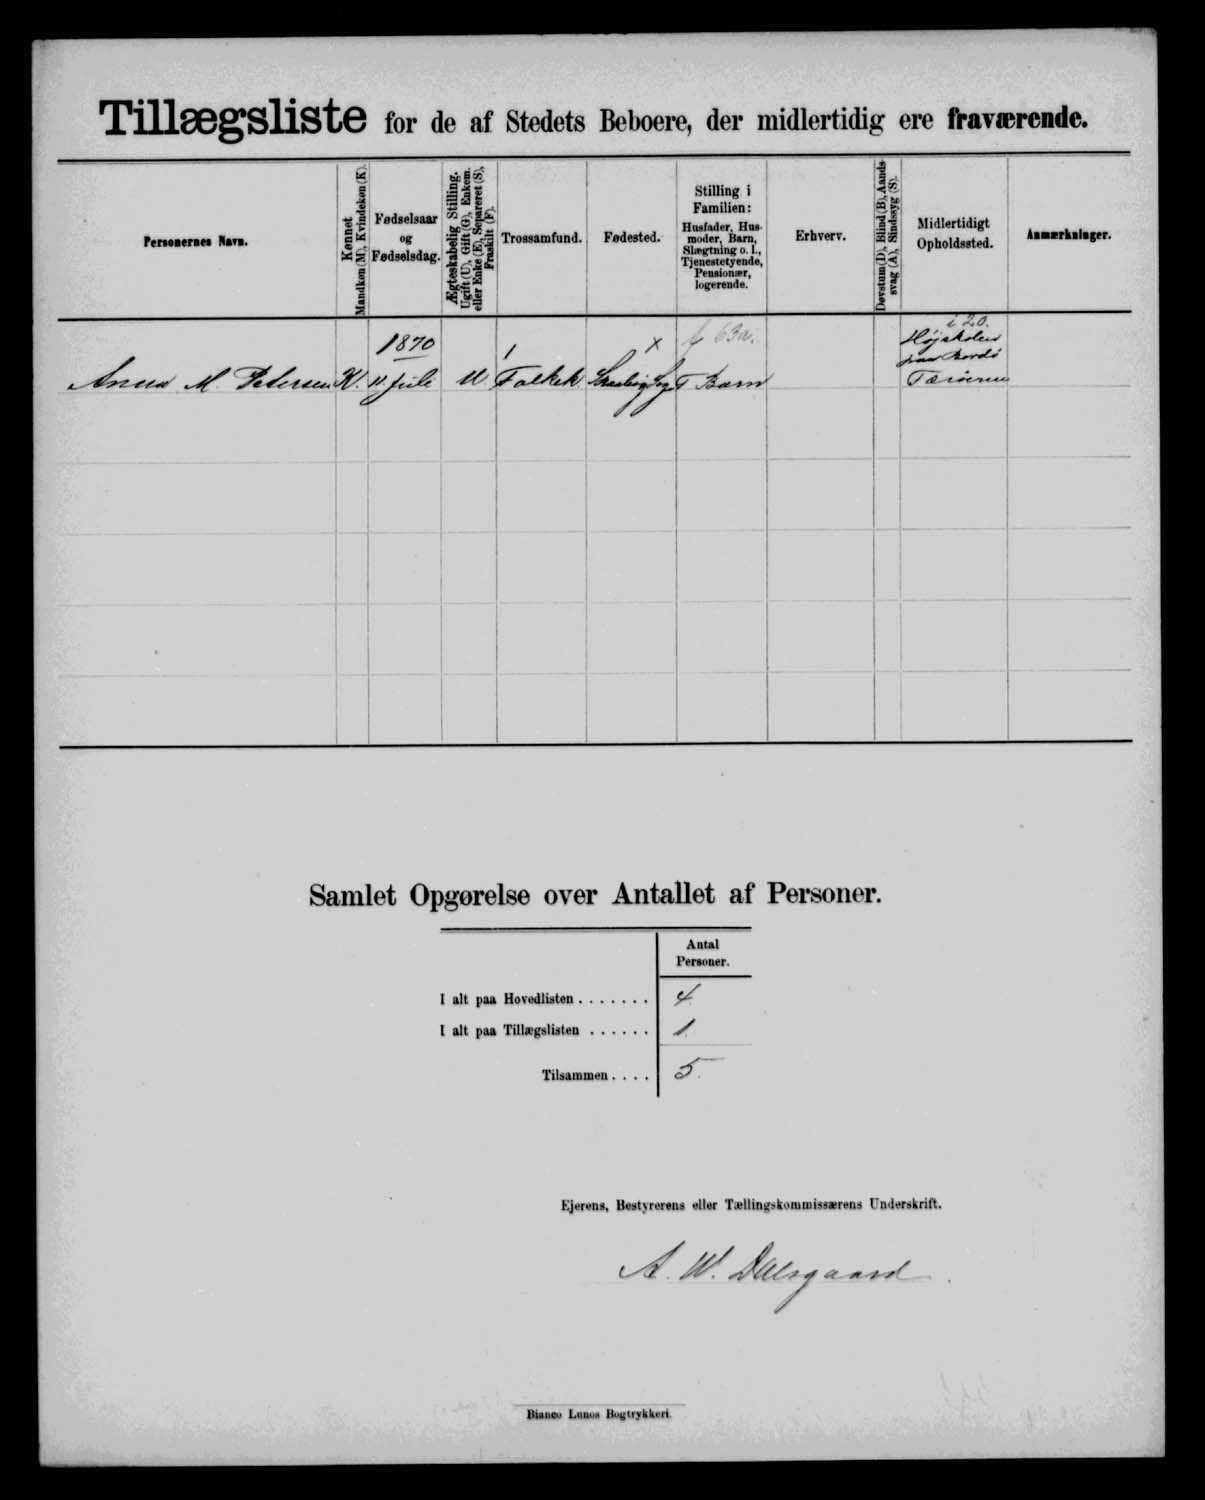 Tillægsliste for de af Stedets Beboere, der midlertidig ere fraværende.
Personernes Navn.
Kønnet
Mandkøn (M), Kvindekøn (K).
Fødselsaar
og
Fødselsdag.
Ægteskabelig Stilling.
Ugift (U), Gift (G), Enkem.
eller Enke (E), Separeret (S),
Fraskilt (F).
Trossamfund.
Fødested.
Stilling i
Familien:
Husfader, Hus-
moder, Barn,
Slægtning o. l.,
Tjenestetyende,
Pensionær,
logerende.
Erhverv.
Døvstum (D), Blind (B), Aands-
svag (A), Sindssyg (S).
Midlertidigt
Opholdssted.
Anmærkninger.
Anna M. Petersen
K.
1870
11 Juli
U
1
Folkek
x
Sogn
Barn
i 20.
Højskolen
paa Bordö
Færöerne
Samlet Opgørelse over Antallet af Personer.
Antal
Personer.
I alt paa Hovedlisten . . . . . . . 4.
I alt paa Tillægslisten . . . . . . 1.
Tilsammen . . . . 5.
Ejerens, Bestyrerens eller Tællingskommissærens Underskrift.
A. W. Dalsgaard.
Bianco Lunos Bogtrykkeri.